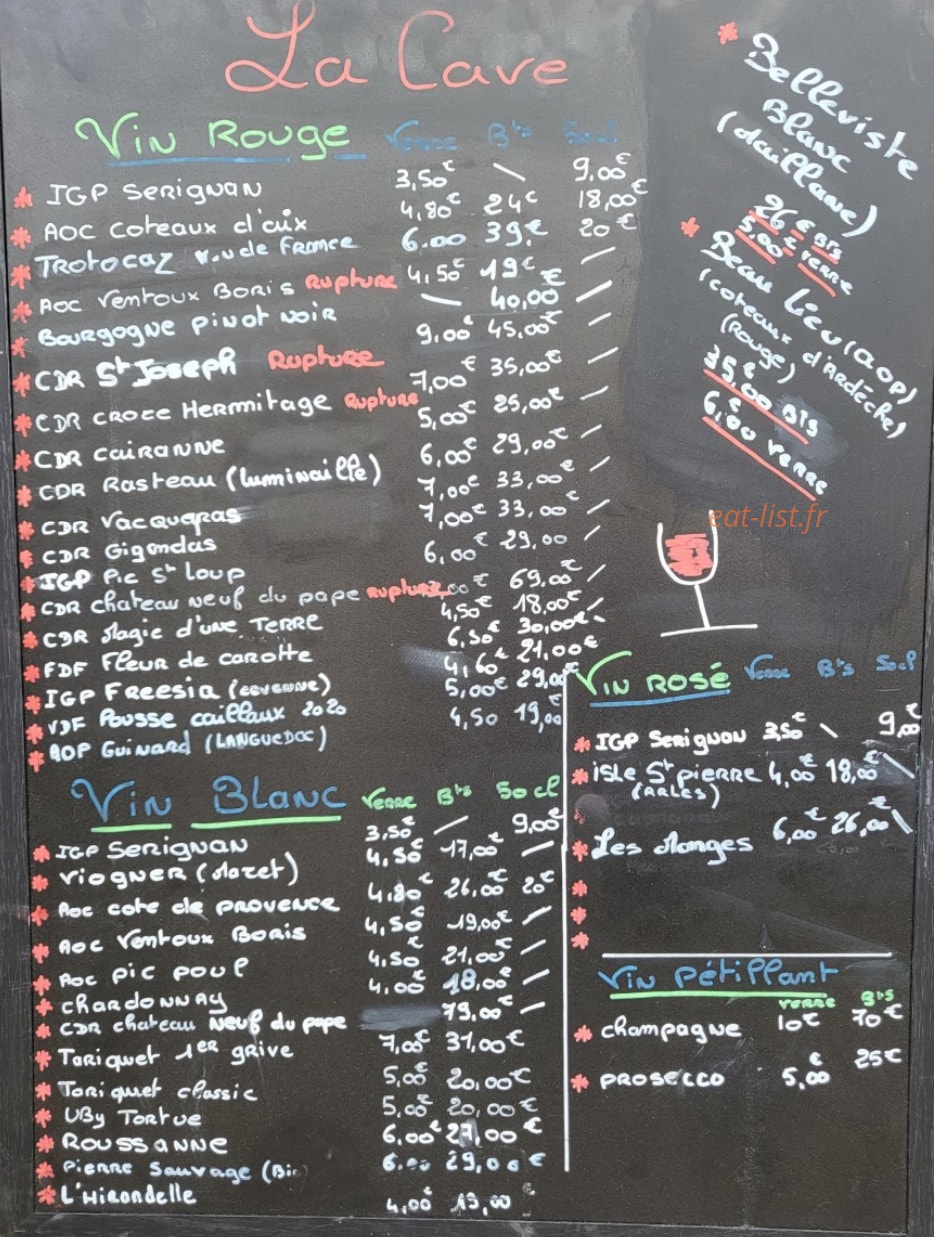 La Cave
Vin Rouge Verre Bts 50cl
IGP Serignan 3,50€ \ 9,00€
AOC Coteaux d'aix 4,80€ 24€ 18,00€
Trotocaz de France 6.00 39,€ 20€
AOC Ventoux Boris Rupture 4,50€ 19€ /
Bourgogne pinot noir — 40,00€ /
CDR St Joseph Rupture 9,00€ 45,00€ /
CDR Croze Hermitage Rupture 7,00€ 35,00€ /
CDR Cairanne 5,00€ 25,00€ /
CDR Rasteau (luminaille) 6,00€ 29,00€ /
CDR Vacqueyras 7,00€ 33,00€ /
CDR Gigondas 7,00€ 33,00€ /
IGP Pic St Loup 6,00€ 29,00 /
CDR chateau neuf du pape Rupture 69,00€ /
CDR Magie d'une Terre 4,50€ 18,00€ /
FDF Fleur de carotte 6,50€ 30,00€
IGP Freesia (cevenne) 4,60€ 21,00€
VDF Pousse caillaux 2020 5,00€ 29,00€
AOP Guinard (LANGUEDOC) 4,50 19,00
Vin Blanc Verre Bts 50cl
IGP Serignan 3,50€ / 9,00€
Viogner (Mazet) 4,50€ 17,00€ /
Aoc cote de provence 4,80€ 26,00€ 20€
Aoc Ventoux Boris 4,50€ 19,00€ /
Aoc pic poul 4,50€ 21,00€ /
chardonnay 4,00€ 18,00€ /
CDR chateau Neuf du pape 79,00€ /
Tariquet 1er grive 7,00€ 31,00€
Tariquet classic 5,00€ 20,00€
UBy Tortue 5,00€ 20,00€
Roussanne 6,00€ 27,00€
Pierre Sauvage (Bio) 6.00 29,00€
L'Hirondelle 4,00€ 19,00€
Belleviste
Blanc
(daillane)
26€ Bts
5,00€ verre
Beau Lieu (AOP)
(coteaux d'Ardèche)
(Rouge)
35,00€ Bts
6,00€ verre
eat-list.fr
Vin Rosé Verre Bts 50cl
IGP Serignan 3,50€ \ 9,00€
isle St pierre 4,00€ 18,00€ \
(ARLES)
Les Manges 6,00€ 26,00€ \
Vin Pétillant
verre Bts
champagne 10€ 70€
prosecco 5,00€ 25€